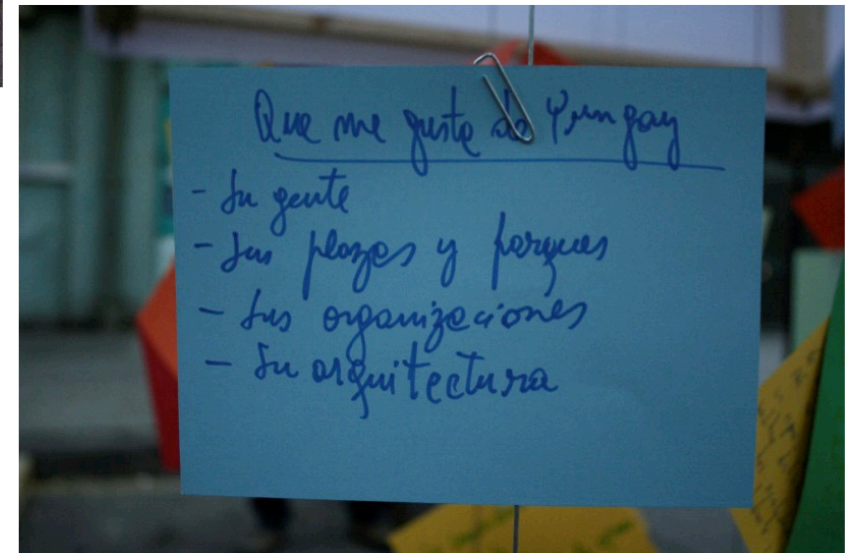 Que me gusta de Yungay
- Su gente
- Sus plazas y parques
- Sus organizaciones
- Su arquitectura